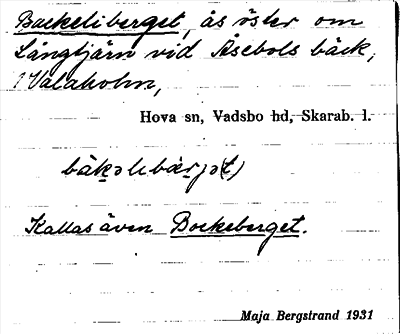 Backeliberget, ås öster om
Långtjärn vid Åsebols bäck,
Valaholm,
Hova sn, Vadsbo hd, Skarab. l.
Kallas även Backeberget.
Maja Bergstrand 1931